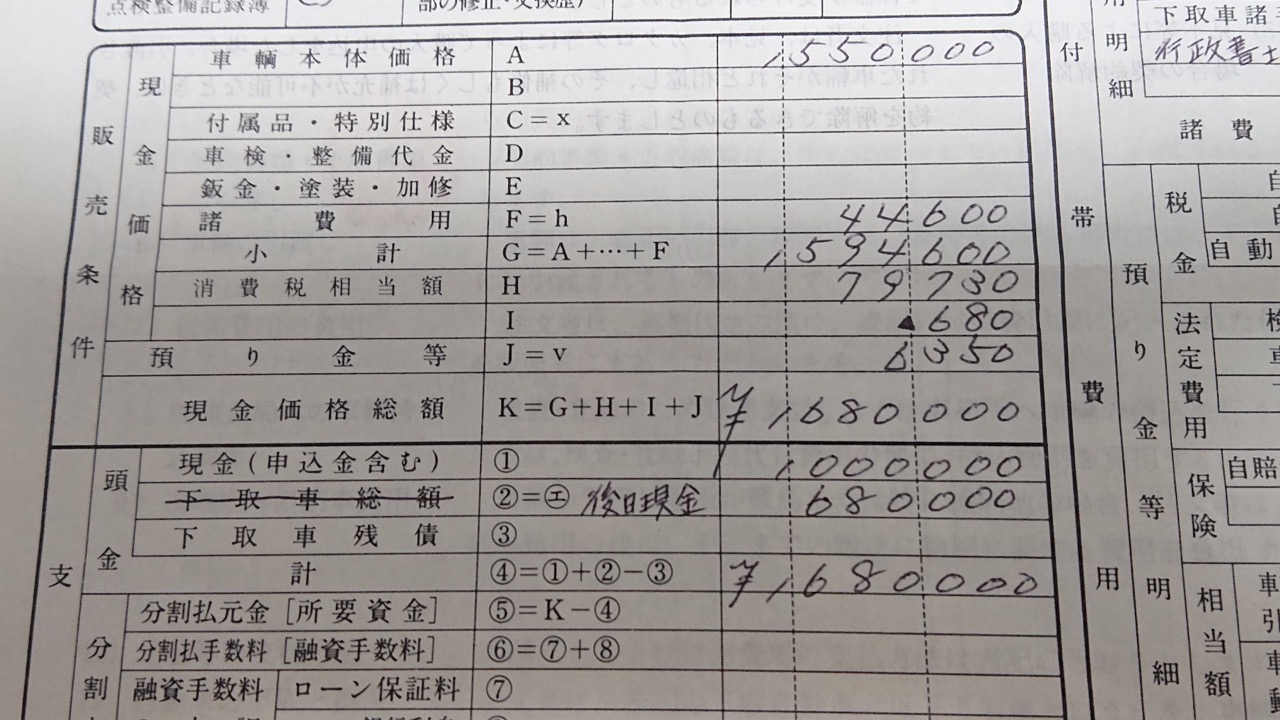 点検整備記録簿
部の修正・交換歴)
販売条件
現金価格
車輌本体価格 A 1550000
B
付属品・特別仕様 C=x
車検・整備代金 D
鈑金・塗装・加修 E
諸費用 F=h 44600
小計 G=A+…+F 1594600
消費税相当額 H 79730
I ▲680
預り金等 J=v 6350
現金価格総額 K=G+H+I+J ¥1680000
支
頭金
現金(申込金含む) ① 1000000
下取車総額 ②=㋓ 後日現金 680000
下取車残債 ③
計 ④=①+②−③ ¥1680000
分割
分割払元金[所要資金] ⑤=K−④
分割払手数料[融資手数料] ⑥=⑦+⑧
融資手数料 ローン保証料 ⑦
付帯費用
用明細
下取車諸
行政書士
諸費
預り金等明細
税金
自動
法定費用
保険
自賠
相当額